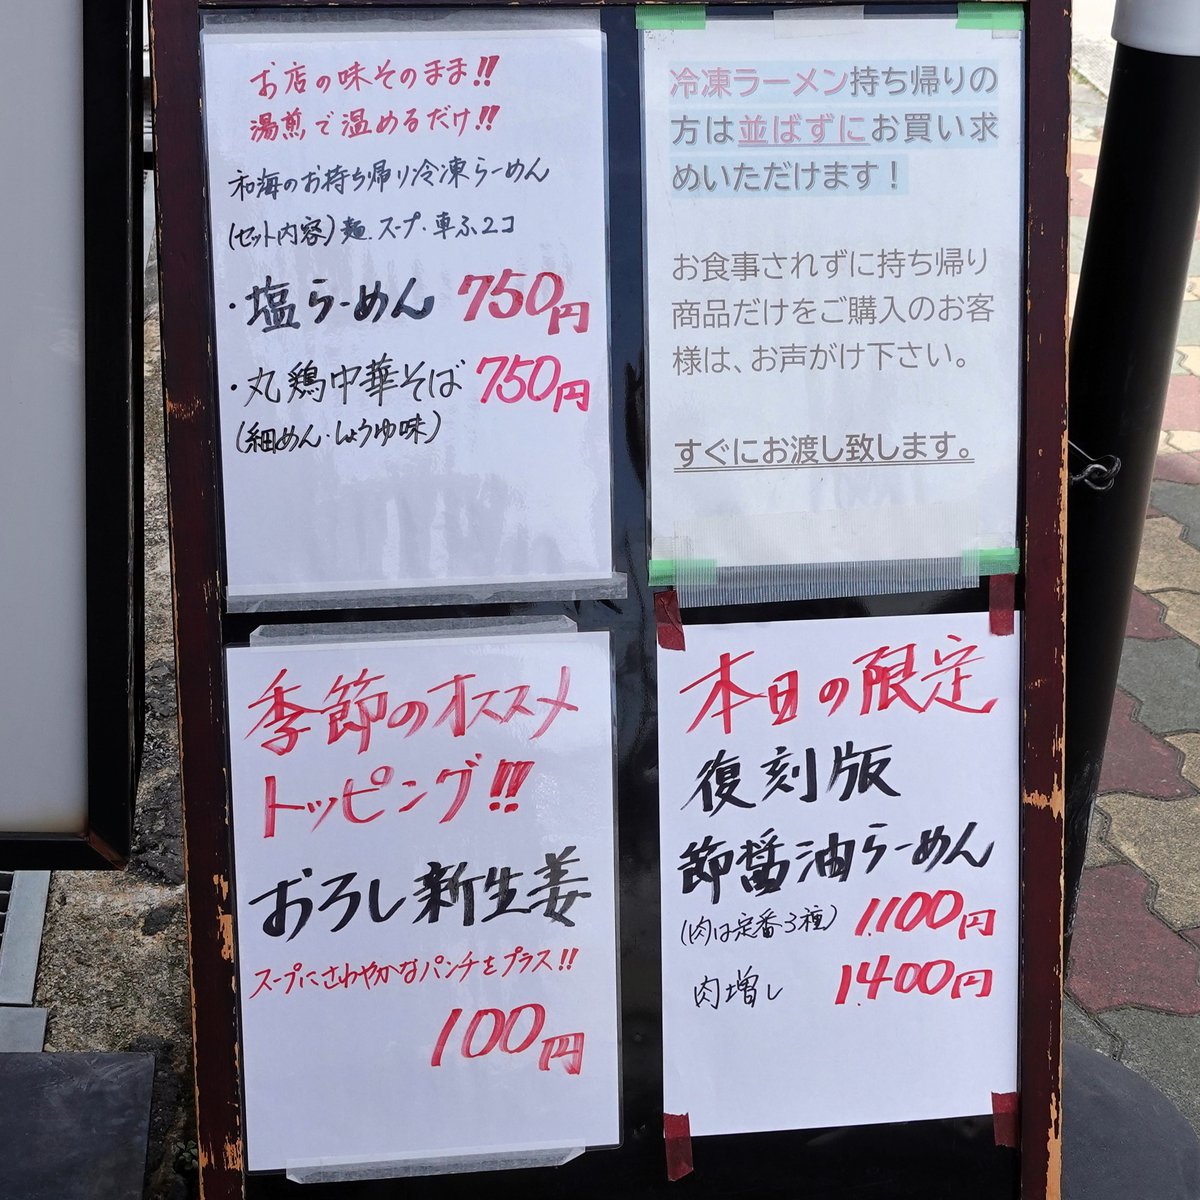 お店の味そのまま!!
湯煎で温めるだけ!!
和海のお持ち帰り冷凍らーめん
(セット内容)麺.スープ.車ふ2コ
・塩らーめん 750円
・丸鶏中華そば 750円
(細めん・しょうゆ味)
冷凍ラーメン持ち帰りの
方は並ばずにお買い求
めいただけます！
お食事されずに持ち帰り
商品だけをご購入のお客
様は、お声がけ下さい。
すぐにお渡し致します。
季節のオススメ
トッピング!!!
おろし新生姜
スープにさわやかなパンチをプラス!!
100円
本日の限定
復刻版
節醤油らーめん
(肉は定番3種) 1.100円
肉増し 1.400円